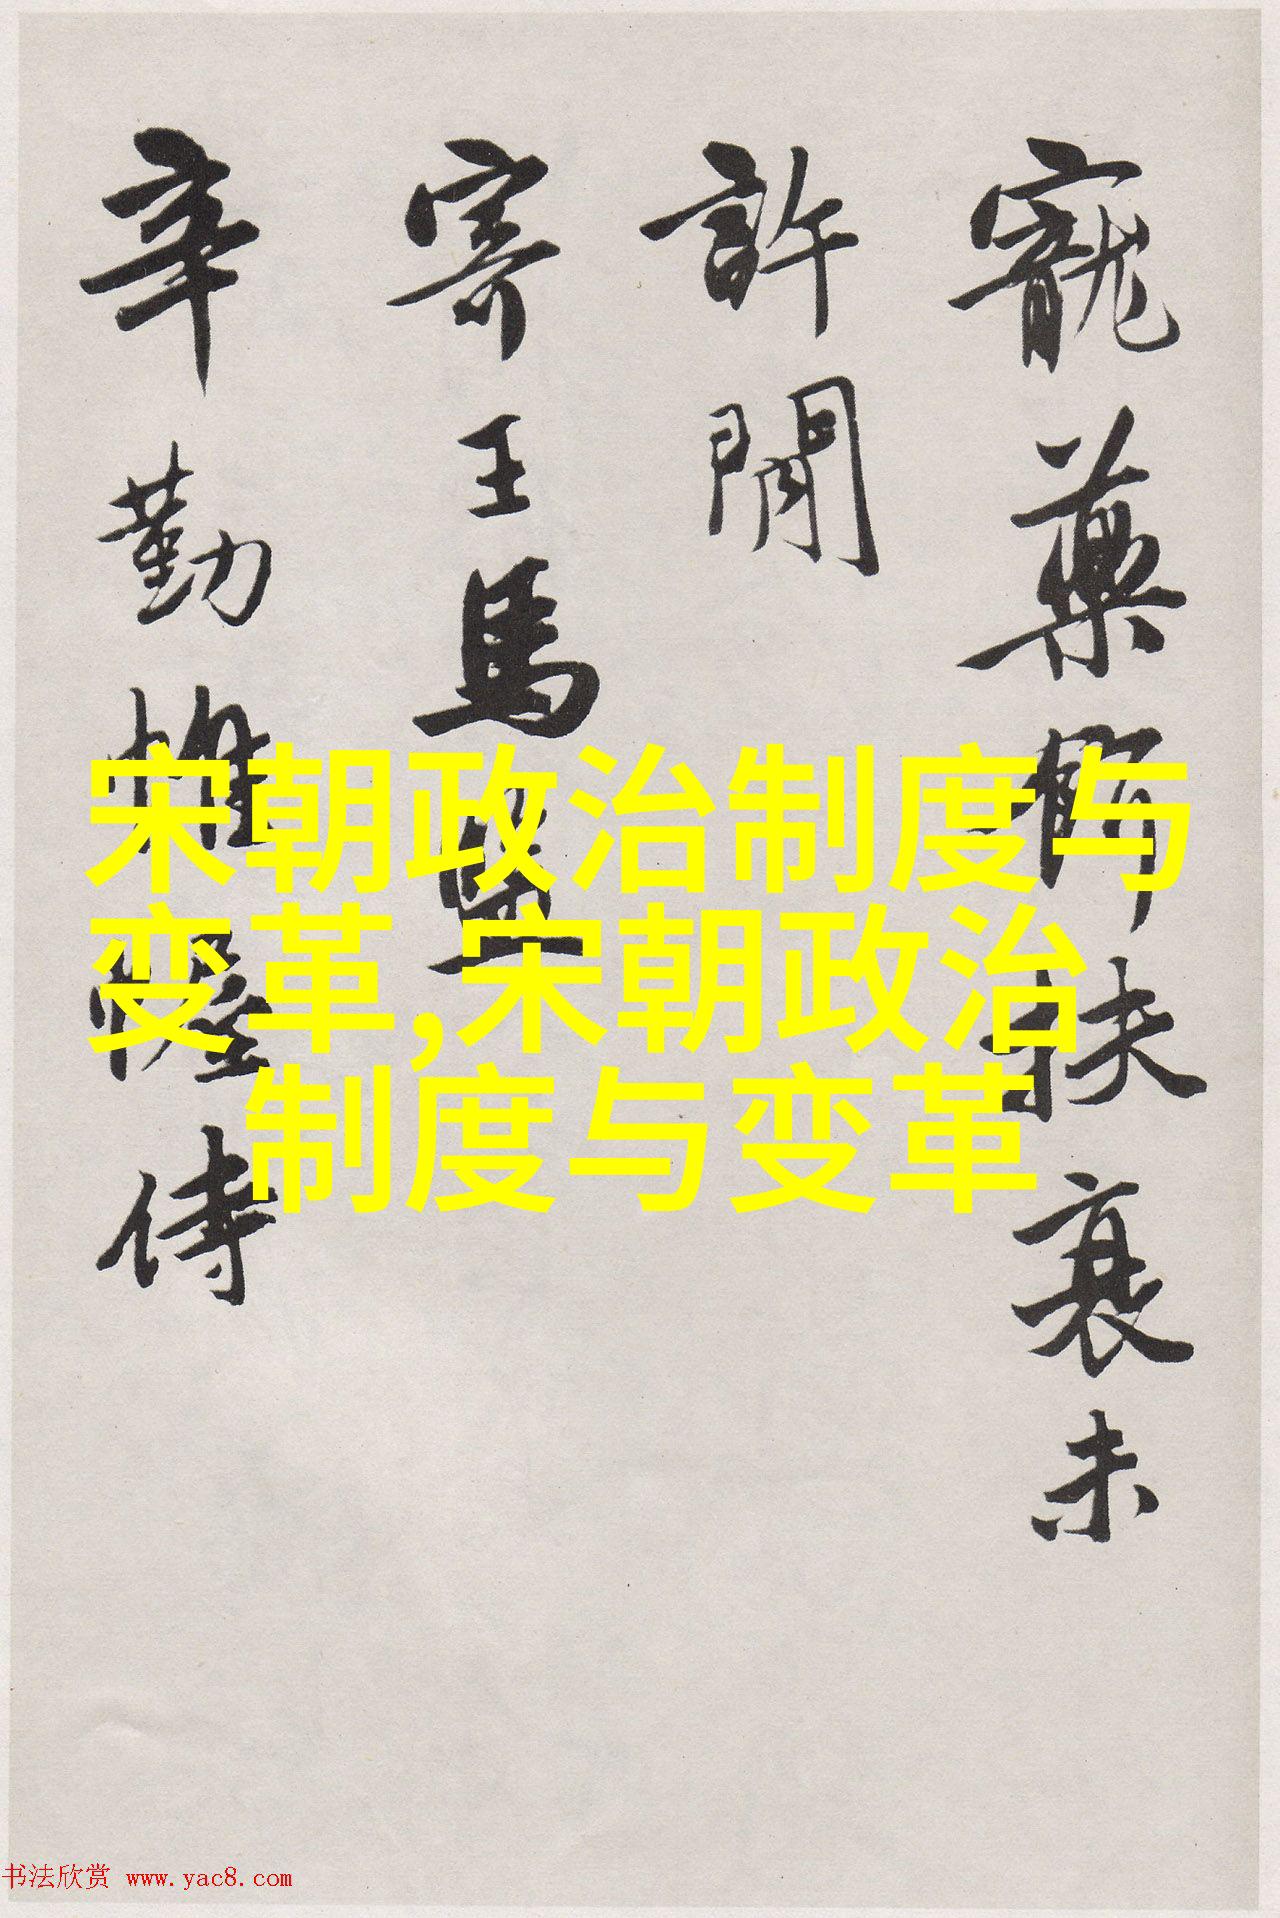 寵藥時扶衰未
許閒
寄王馬
辛勤帷幄侍
宋朝政治制度与
变革,宋朝政治
制度与变革
书法欣赏 www.yac8.com